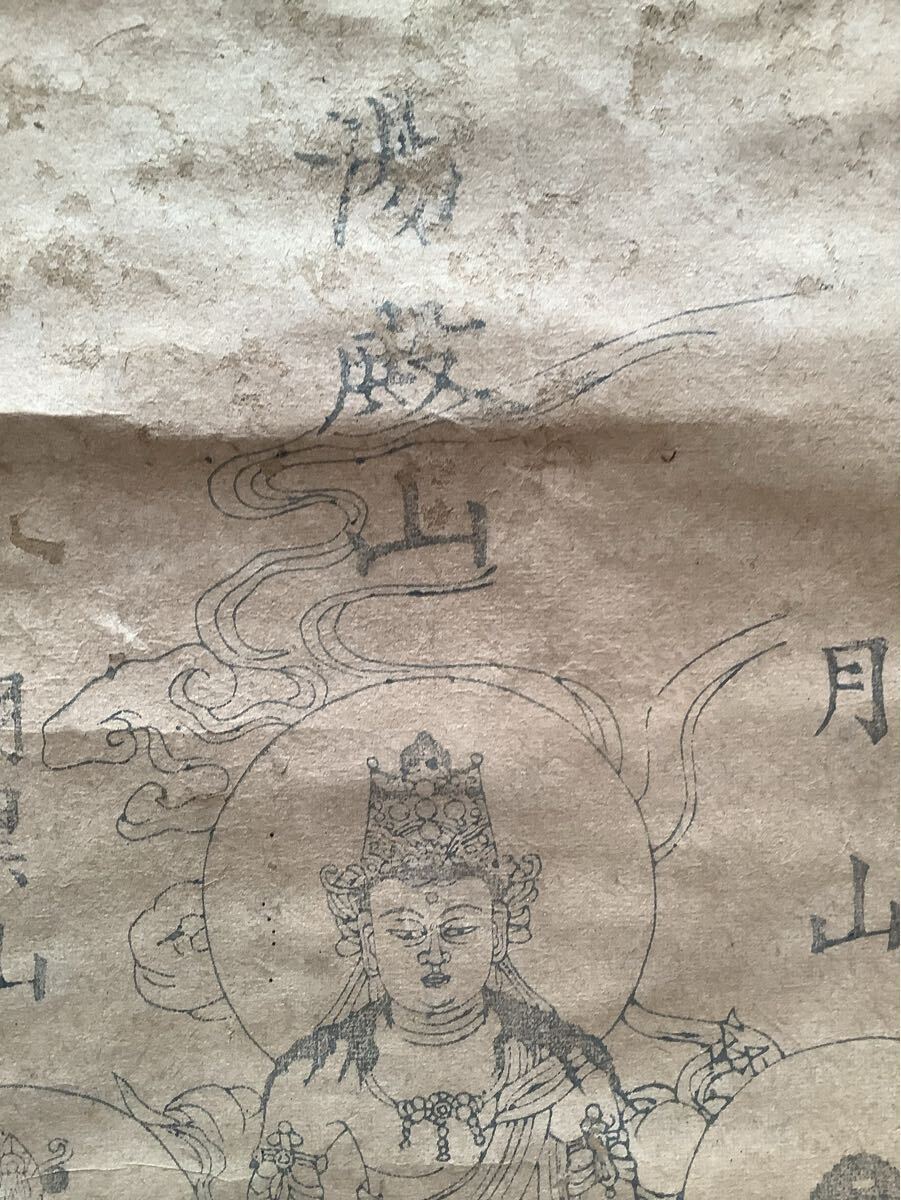 湯殿山
月山
山